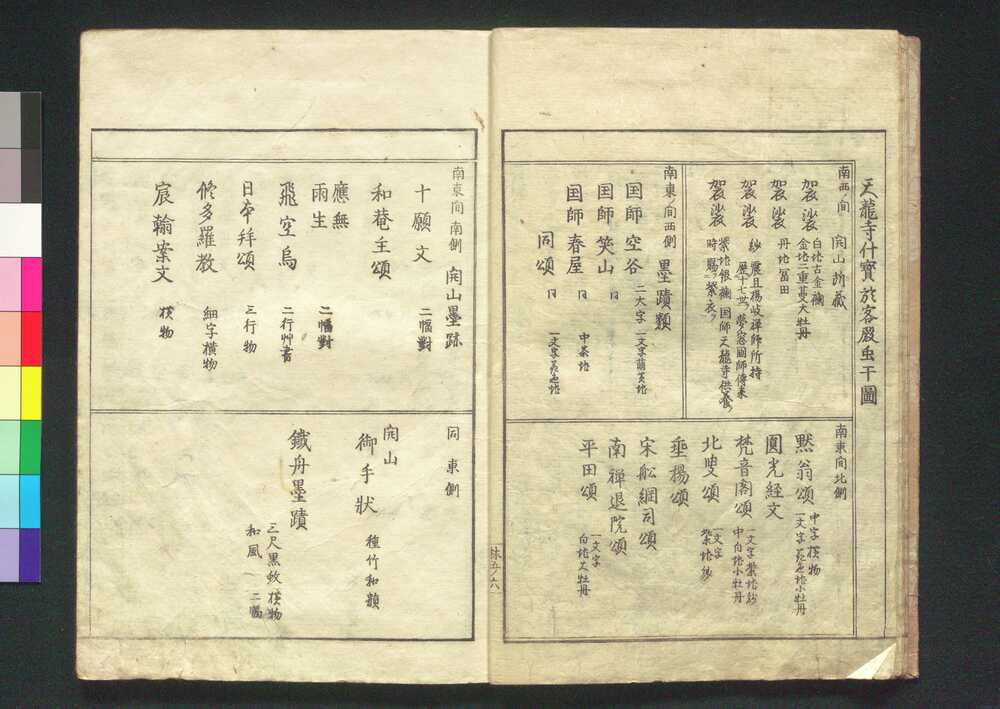 天龍寺什寳於客殿虫干圖
南西ノ間 開山納蔵
袈裟 白地古金襴
金地二重蔓大牡丹
袈裟 丹地冨田
袈裟 紗 震旦楊岐禅師所持
歴十七世ヲ夢窓國師傳来
袈裟 紫地銀襴 国師天龍寺供養ノ
時 賜フ紫衣ヲ
南東ノ間西側 墨蹟類
国師 空谷 二大字 一文字萠黄地
国師 笑山 同 中茶地
国師 春屋 同
同頌 同
南東向北側
黙翁頌 中字横物
一文字花色地小牡丹
圓光経文
梵音閣頌 一文字紫地紗
中白地小牡丹
北叟頌 一文字
紫地紗
垂楊頌
宋舩綱司頌
南禅退院頌
平田頌 一文字
白地大牡丹
林五ノ六
南東向南側 開山墨跡
十願文 二幅對
和菴主頌
應無
雨生 二幅對
飛空鳥 二行艸書
日夲拜頌 三行物
修多羅教 細字横物
宸翰案文 横物
同東側
開山
御手状 種竹和韻
鐵舟墨蹟 三尺黒蚊横物
和風 二幅